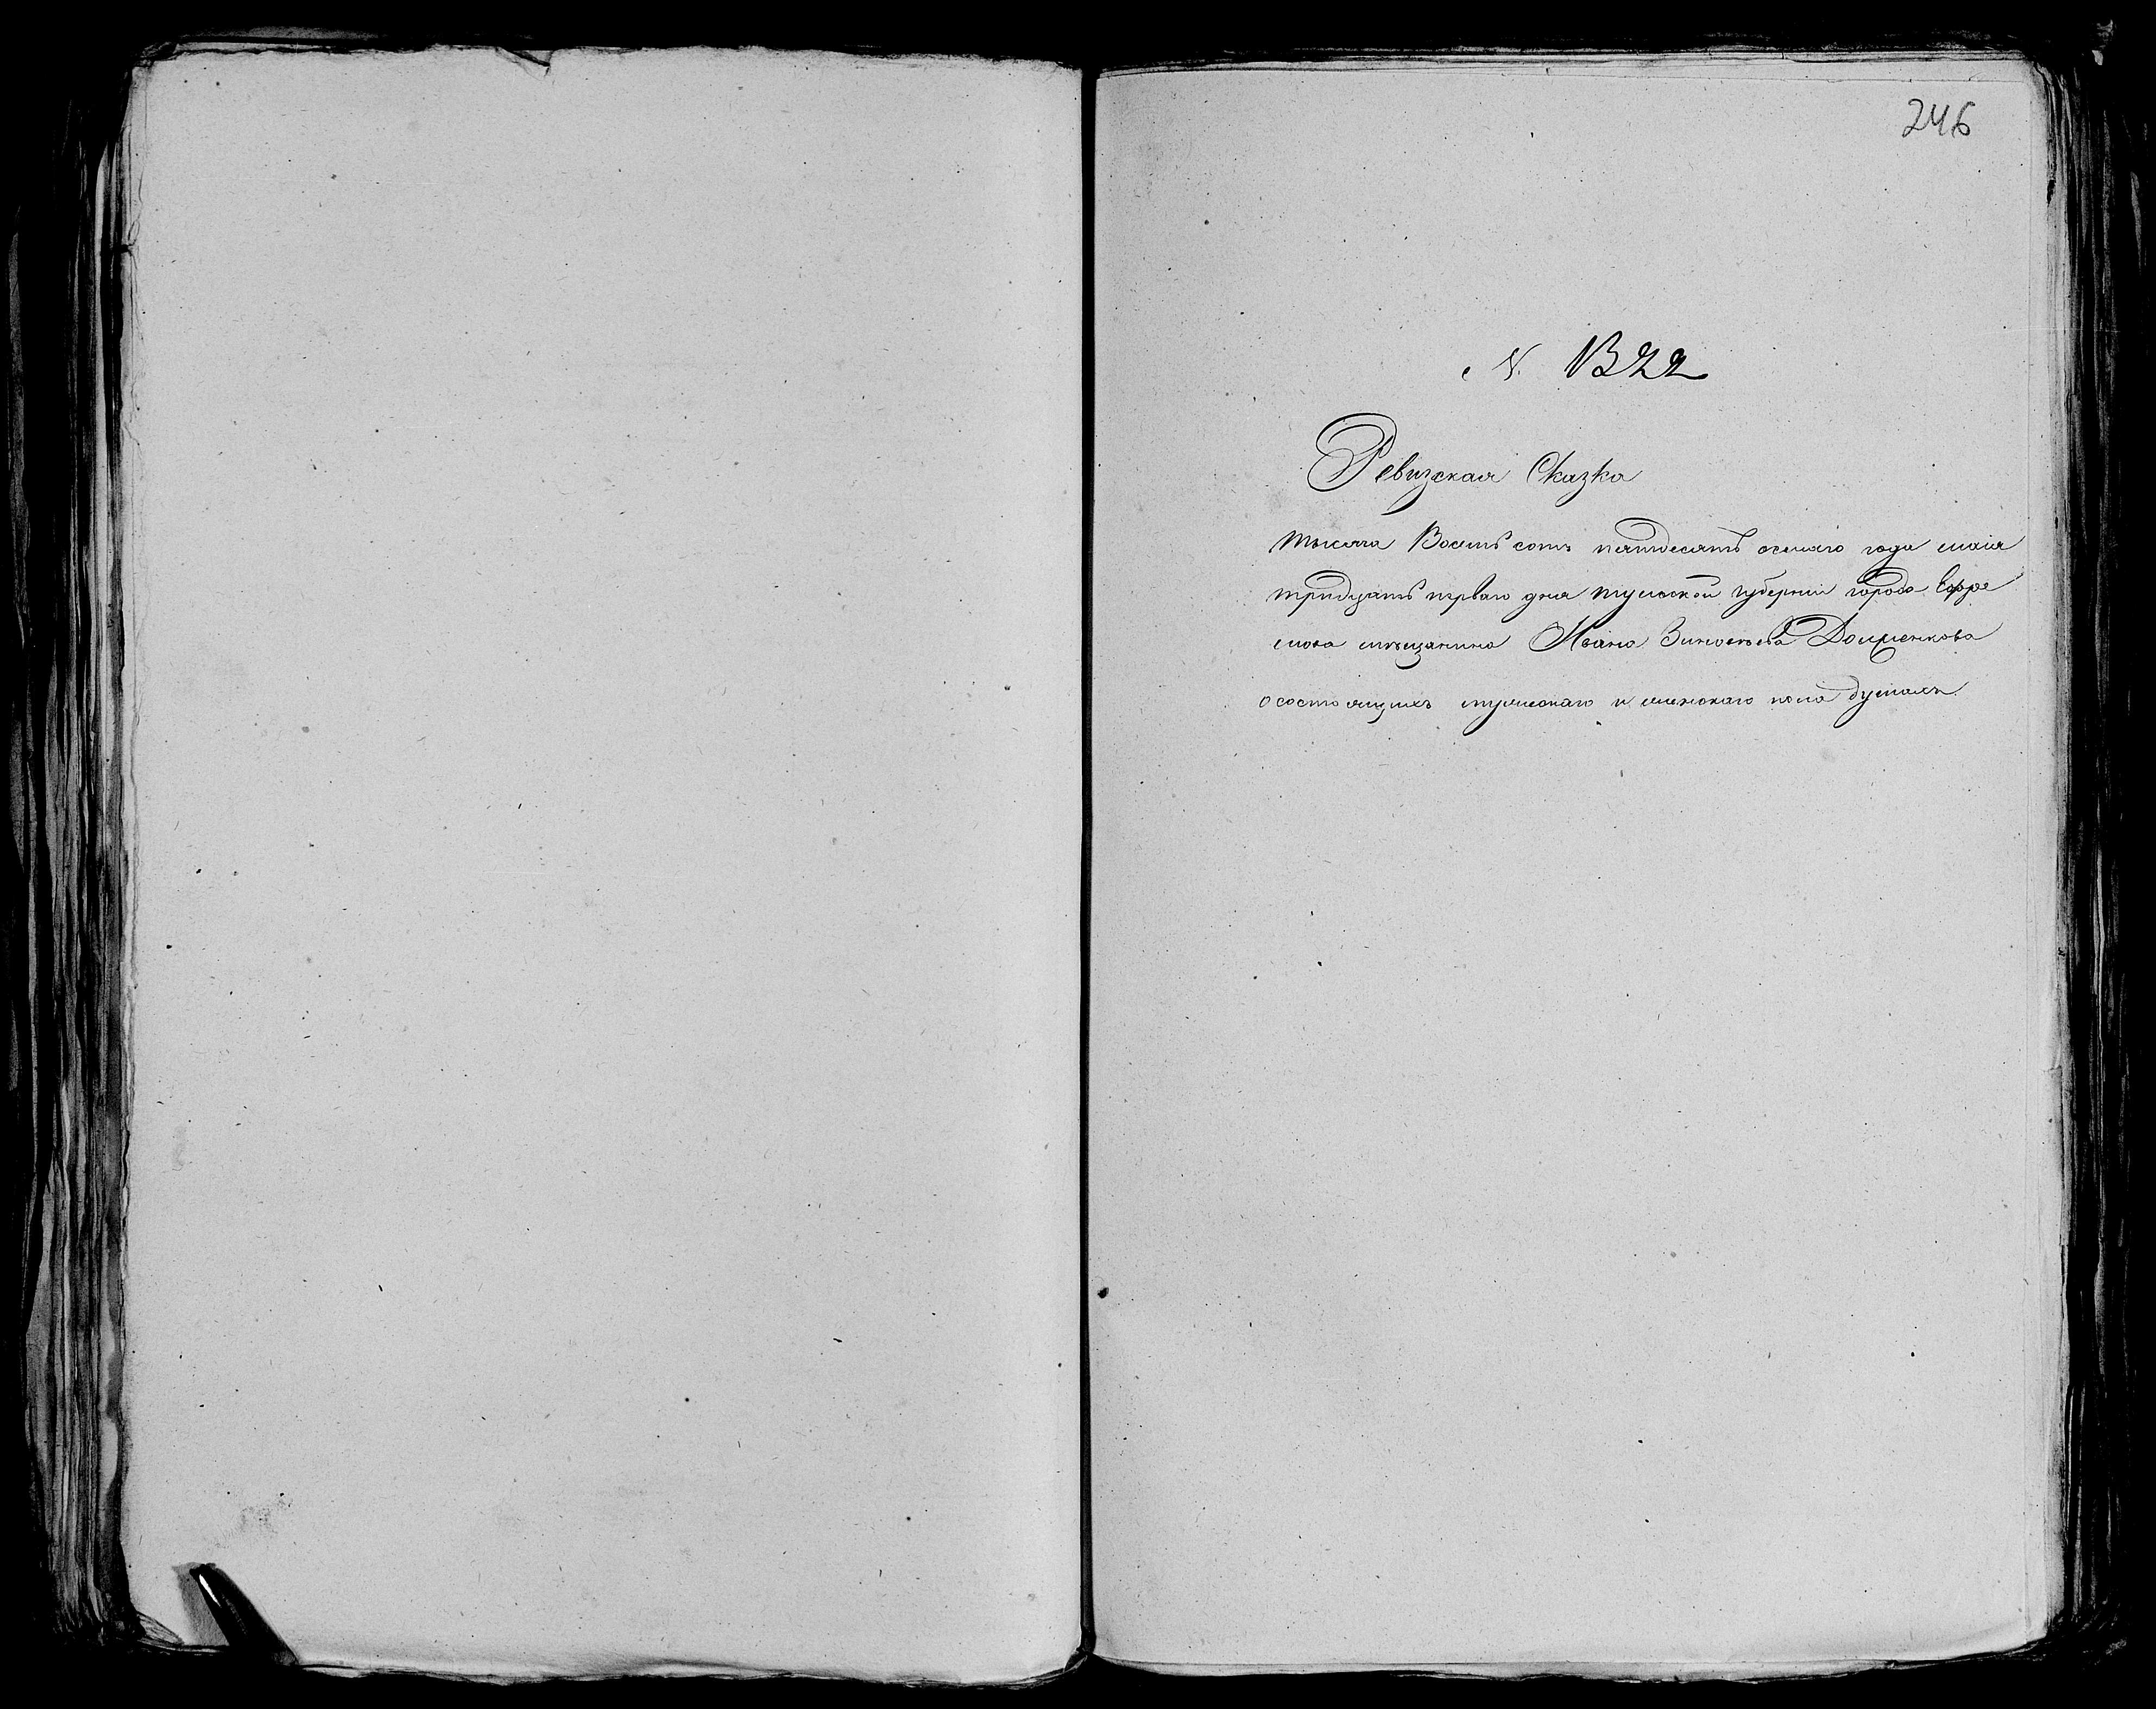 246
N. 1322
Ревизская Сказка
тысяча Восемь сотъ пятьдесятъ осмаго года маія
тридцать перваго дня тульской губерніи города Ефре
мова мѣщанина Ивана Зиновьева
о состоящихъ мужескаго и женскаго пола душахъ.